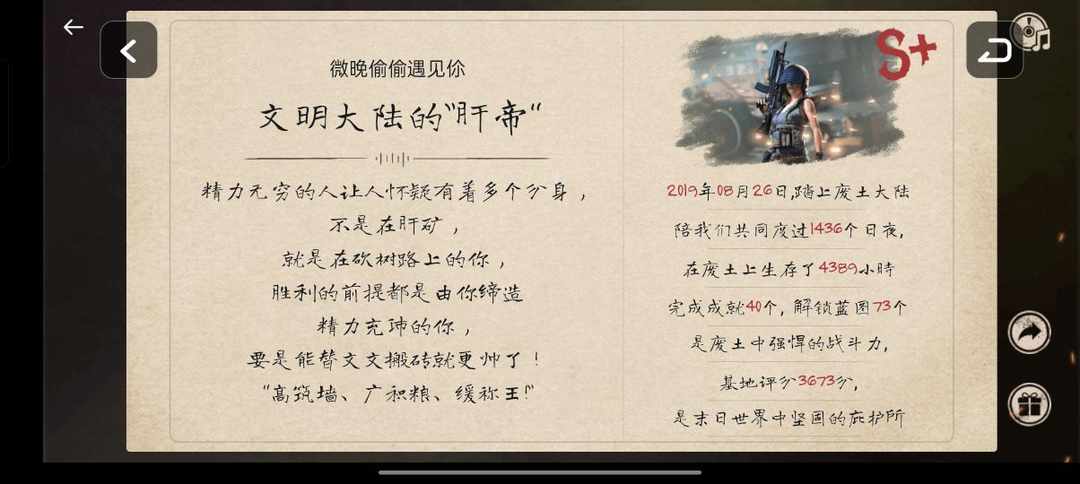 微晚偷偷遇见你
文明大陆的"肝帝"
精力无穷的人让人怀疑有着多个分身，
不是在肝矿，
就是在砍树路上的你，
胜利的前提都是由你缔造
精力充沛的你，
要是能替文文搬砖就更帅了！
"高筑墙、广积粮、缓称王!"
S+
2019年08月26日,踏上废土大陆
陪我们共同度过1436个日夜,
在废土上生存了4389小時
完成成就40个, 解锁蓝图73个
是废土中强悍的战斗力,
基地评分3673分,
是末日世界中坚固的庇护所